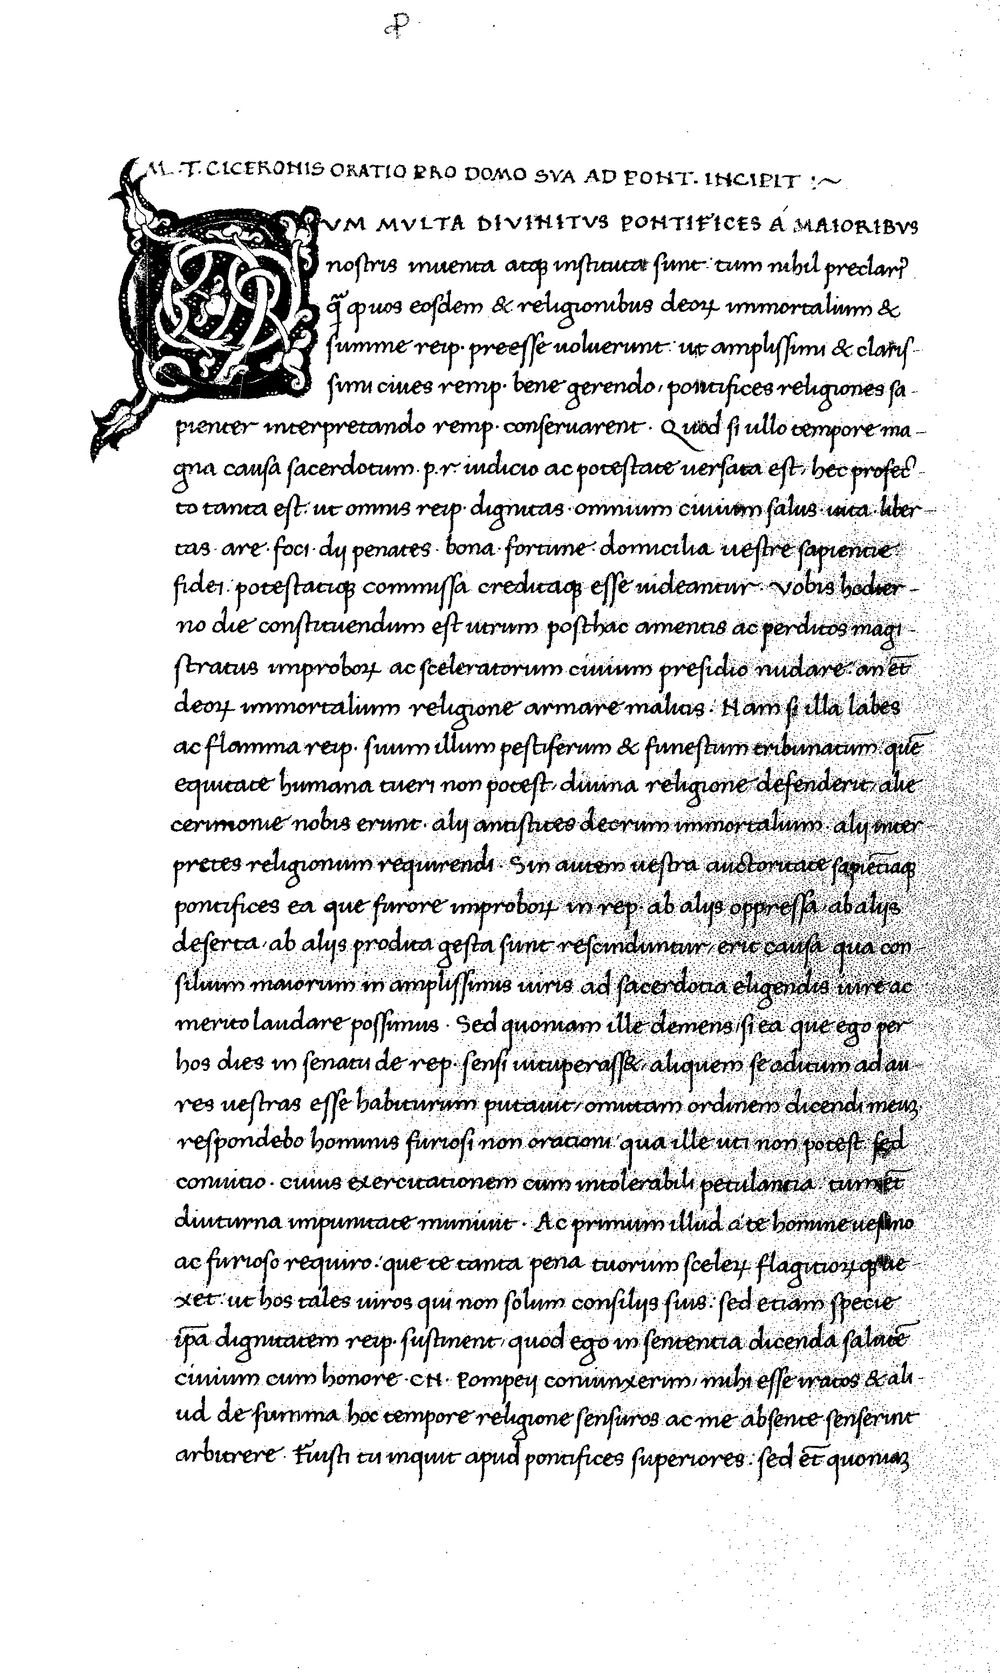 M. T. CICERONIS ORATIO PRO DOMO SVA AD PONT. INCIPIT :~
QUM MVLTA DIVINITVS PONTIFICES Á MAIORIBVS
nostris inuenta atqꝫ instituta sunt: tum nihil preclari᾽
qᷓ ꝙ uos eosdem & religionibus deoꝝ immortalium &
summe reip. preesse uoluerunt: ut amplissimi & claris-
simi ciues remp. bene gerendo, pontifices religiones sa-
pienter interpretando remp. conseruarent. Quod si ullo tempore ma-
gna causa sacerdotum. p. r. iudicio ac potestate uersata est, hec profec᾽
to tanta est: ut omnis reip. dignitas. omnium ciuium salus. uita. liber-
tas. are. foci. dij penates. bona. fortune. domicilia uestre sapientie.
fidei. potestatiqꝫ commissa creditaqꝫ esse uideantur. Vobis hodier-
no die constituendum est utrum posthac amentis ac perditos magi-
stratus improboꝝ ac sceleratorum ciuium presidio nudare: an et̄
deoꝝ immortalium religione armare malitis. Nam si illa labes
ac flamma reip. suum illum pestiferum & funestum tribunatum: quē
equitate humana tueri non potest, diuina religione defenderit, alie
cerimonie nobis erunt. alij antistites deorum immortalium. alij inter-
pretes religionum requirendi. Sin autem uestra auctoritate sapiētiaqꝫ
pontifices ea que furore improboꝝ in rep. ab alijs oppressa, ab alijs
deserta, ab alijs prodita gesta sunt rescinduntur, erit causa qua con
silium maiorum in amplissimis uiris ad sacerdotia eligendis iure ac
merito laudare possimus. Sed quoniam ille demens, si ea que ego per
hos dies in senatu de rep. sensi uituperass&, aliquem se aditum ad au-
res uestras esse habiturum putauit, omittam ordinem dicendi meuꝫ.
respondebo hominis furiosi non orationi qua ille uti non potest: sed
conuitio. cuius exercitationem cum intolerabili petulantia. tum et̄
diuturna impunitate muniuit. Ac primum illud a te homine uesano
ac furioso requiro: que te tanta pena tuorum sceleꝝ flagitioꝝqꝫ ue-
xet: ut hos tales uiros qui non solum consilijs suis: sed etiam specie
ip̄a dignitatem reip. sustinent, quod ego in sententia dicenda salutē
ciuium cum honore. CN. Pompeij coniunxerim, mihi esse iratos & ali-
ud de summa hoc tempore religione sensuros ac me absente senserint
arbitrere. Fuisti tu inquit apud pontifices superiores: sed et̄ quoniaꝫ